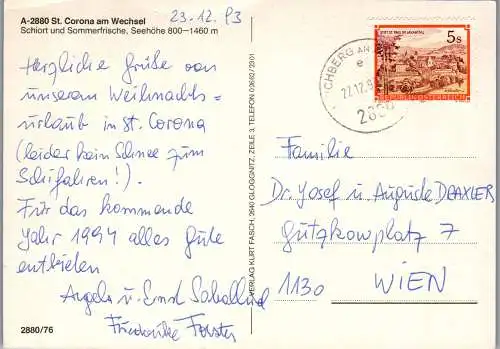 A-2880 St. Corona am Wechsel
Schiort und Sommerfrische, Seehöhe 800–1460 m
23.12.93
Herzliche Grüße von
unserem Weihnachts=
urlaub in St. Corona
(leider kein Schnee zum
Schifahren!).
Für das kommende
Jahr 1994 alles Gute
entbieten
Angela u. Ernst
Friederike Forster
2880/76
VERLAG KURT FASCH, 2640 GLOGGNITZ, ZEILE 3, TELEFON 0 2662/2301
5s
REPUBLIK ÖSTERREICH
CHBERG AM
Familie
Dr. Josef u. Auguste DRAXLER
Gutzkowplatz 7
1130 WIEN